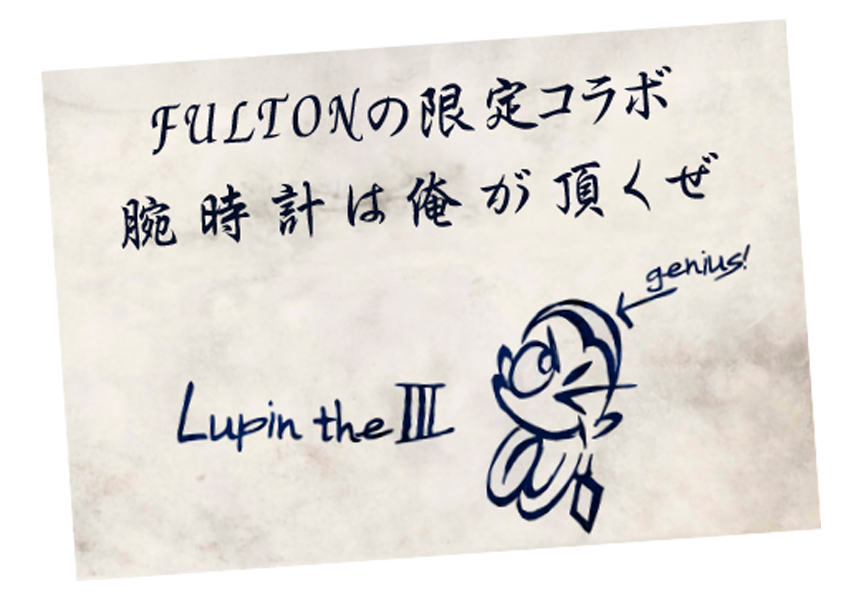 FULTONの限定コラボ
腕時計は俺が頂くぜ
genius!
Lupin the III